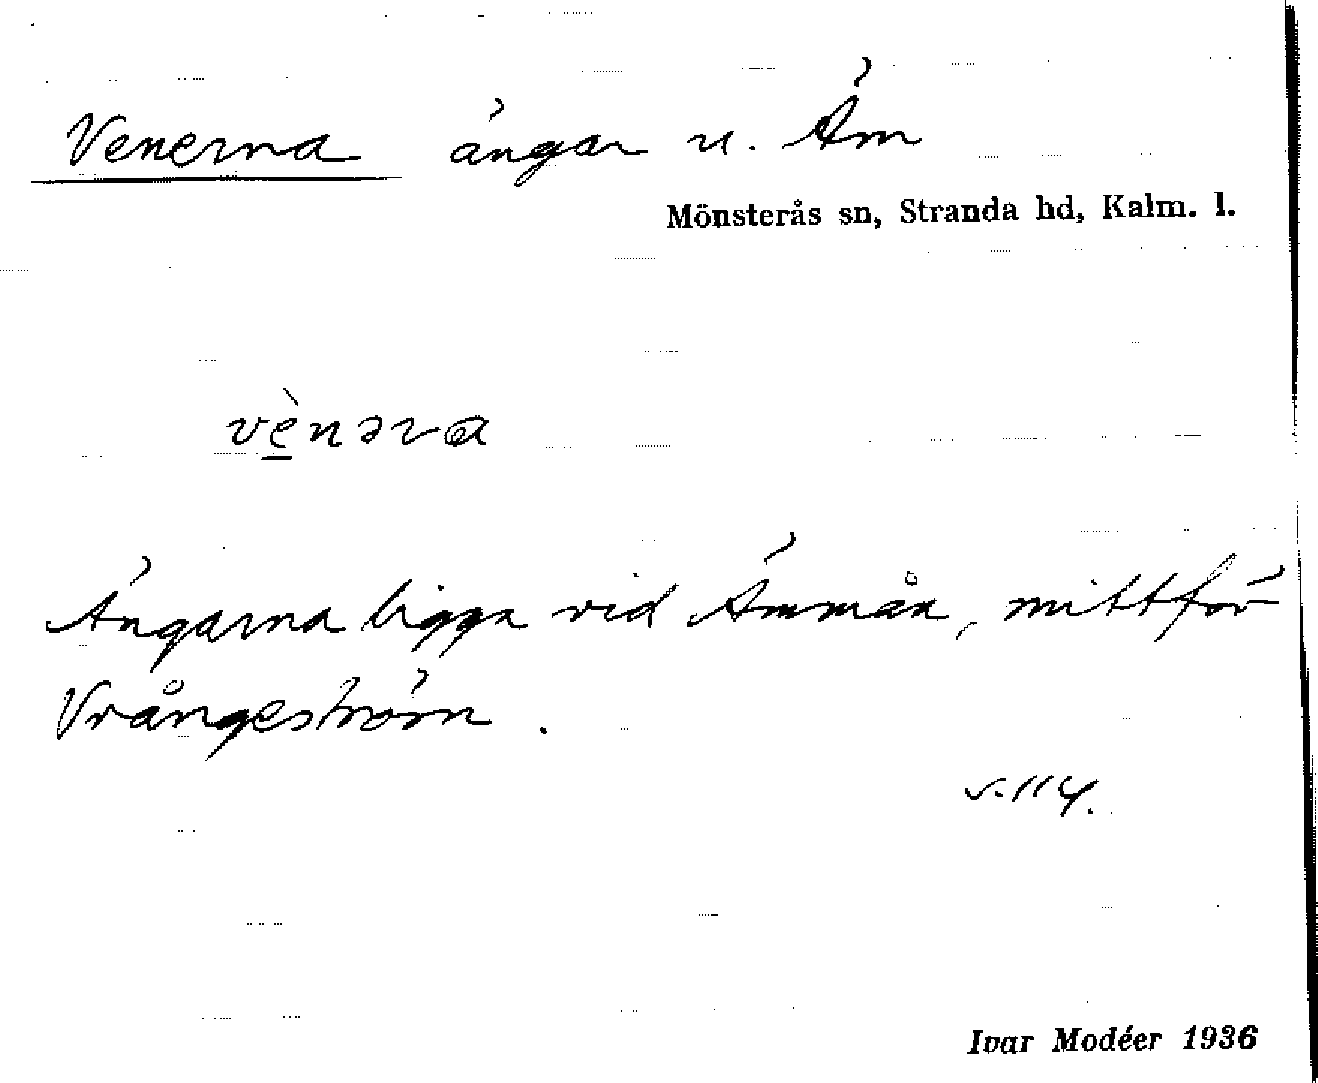 Venerna ängar u. Äm
Mönsterås sn, Stranda hd, Kalm. l.
vènəra
Ängarna ligga vid Ämmån, mittför
Vrångeström.
s. 114.
Ivar Modéer 1936